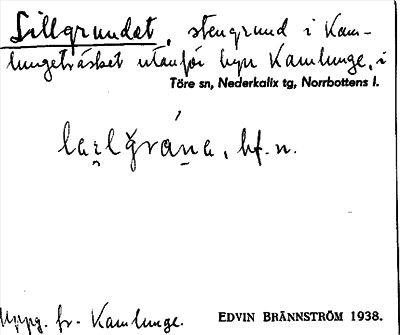 Sillgrundet, stengrund i Kam-
lungeträsket utanför byn Kamlunge, i
Töre sn, Nederkalix tg, Norrbottens l.
bf. n.
Uppg. fr. Kamlunge.
EDVIN BRÄNNSTRÖM 1938.